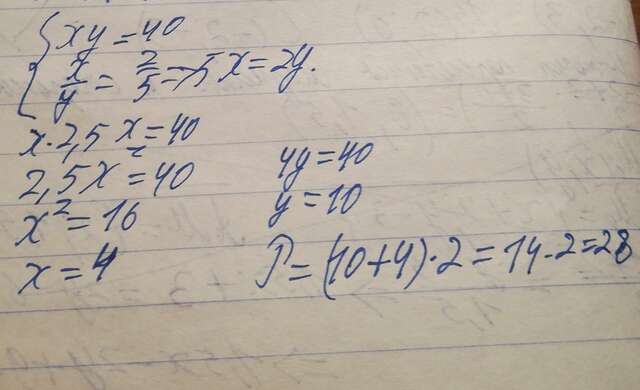 xy = 40
x/y = 2/5 => 5x = 2y.
x · 2,5x = 40
2,5x² = 40
x² = 16
x = 4
4y = 40
y = 10
P = (10+4)·2 = 14·2 = 28